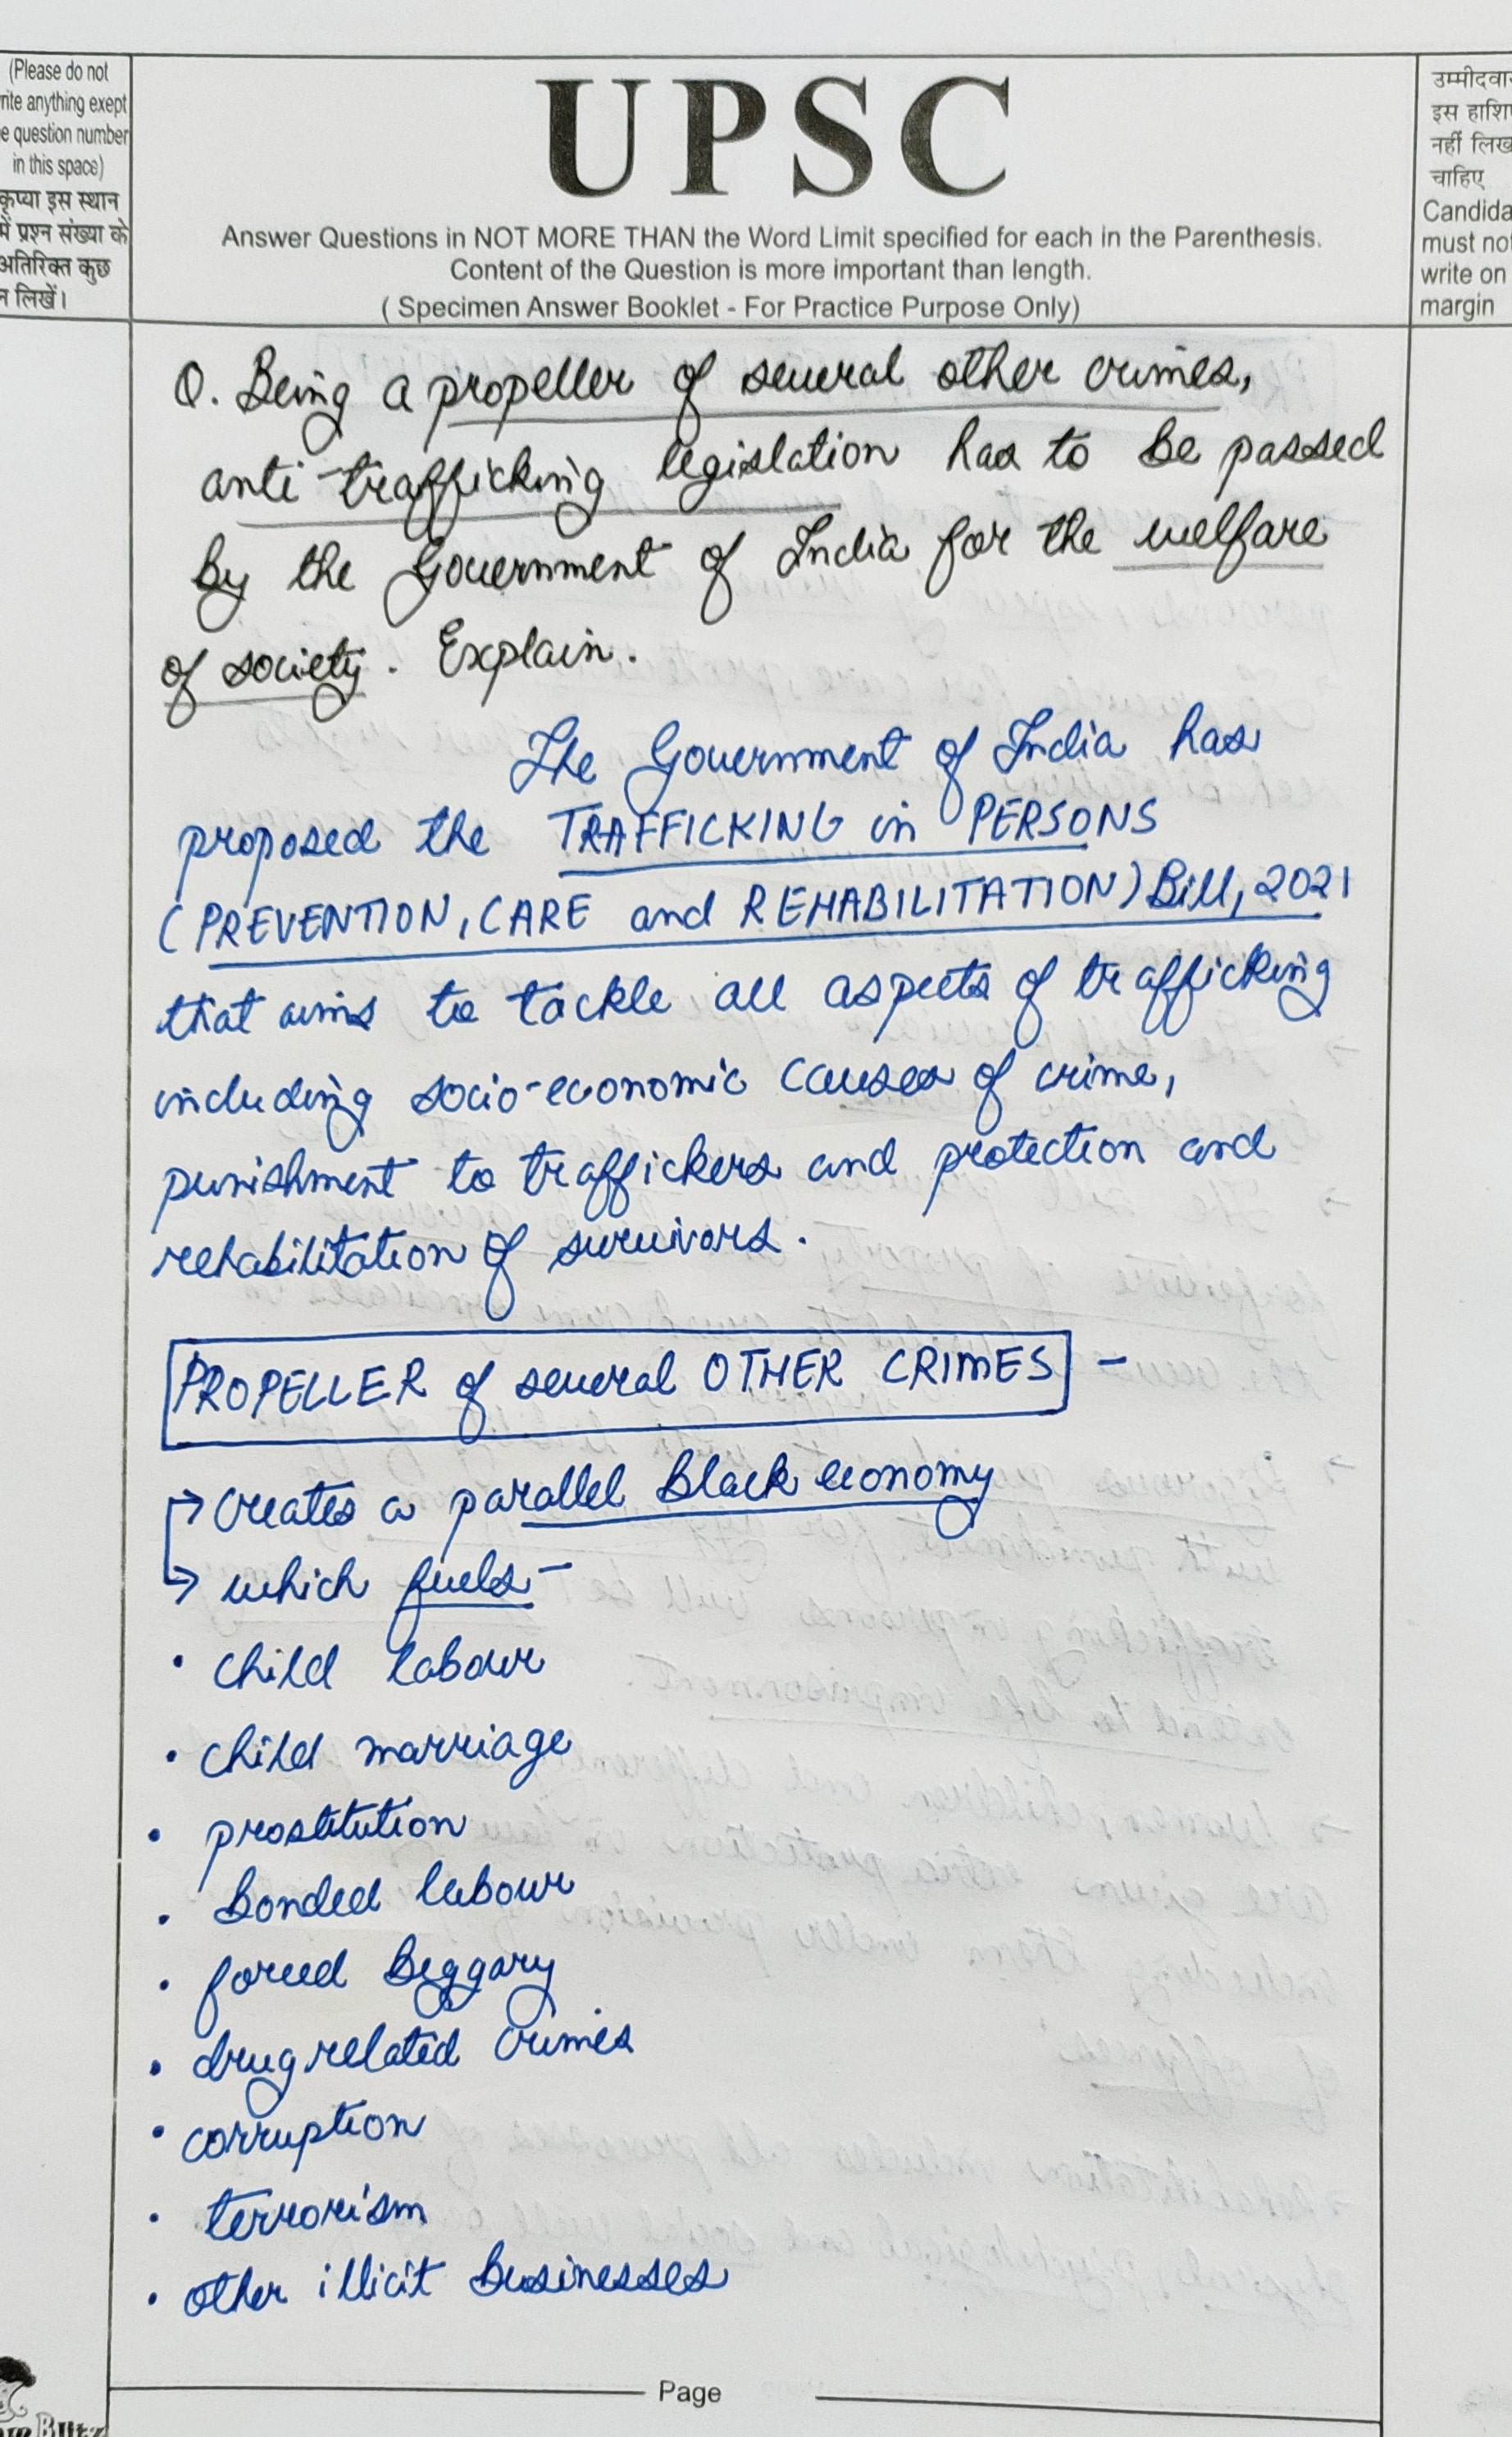 (Please do not
rite anything exept
e question number
in this space)
कृप्या इस स्थान
में प्रश्न संख्या के
अतिरिक्त कुछ
न लिखें।
UPSC
Answer Questions in NOT MORE THAN the Word Limit specified for each in the Parenthesis.
Content of the Question is more important than length.
( Specimen Answer Booklet - For Practice Purpose Only)
उम्मीदवा
इस हाशि
नहीं लिख
चाहिए
Candida
must not
write on
margin
Q. Being a propeller of several other crimes,
anti-trafficking legislation has to be passed
by the Government of India for the welfare
of society. Explain.
The Government of India has
proposed the TRAFFICKING in PERSONS
(PREVENTION, CARE and REHABILITATION) Bill, 2021
that aims to tackle all aspects of trafficking
including socio-economic causes of crime,
punishment to traffickers and protection and
rehabilitation of survivors.
PROPELLER of several OTHER CRIMES -
→ creates a parallel Black economy
→ which fuels -
• child labour
• child marriage
• prostitution
• Bonded labour
• forced Beggary
• drug related crimes
• corruption
• terrorism
• other illicit Businesses
Page
Blitz